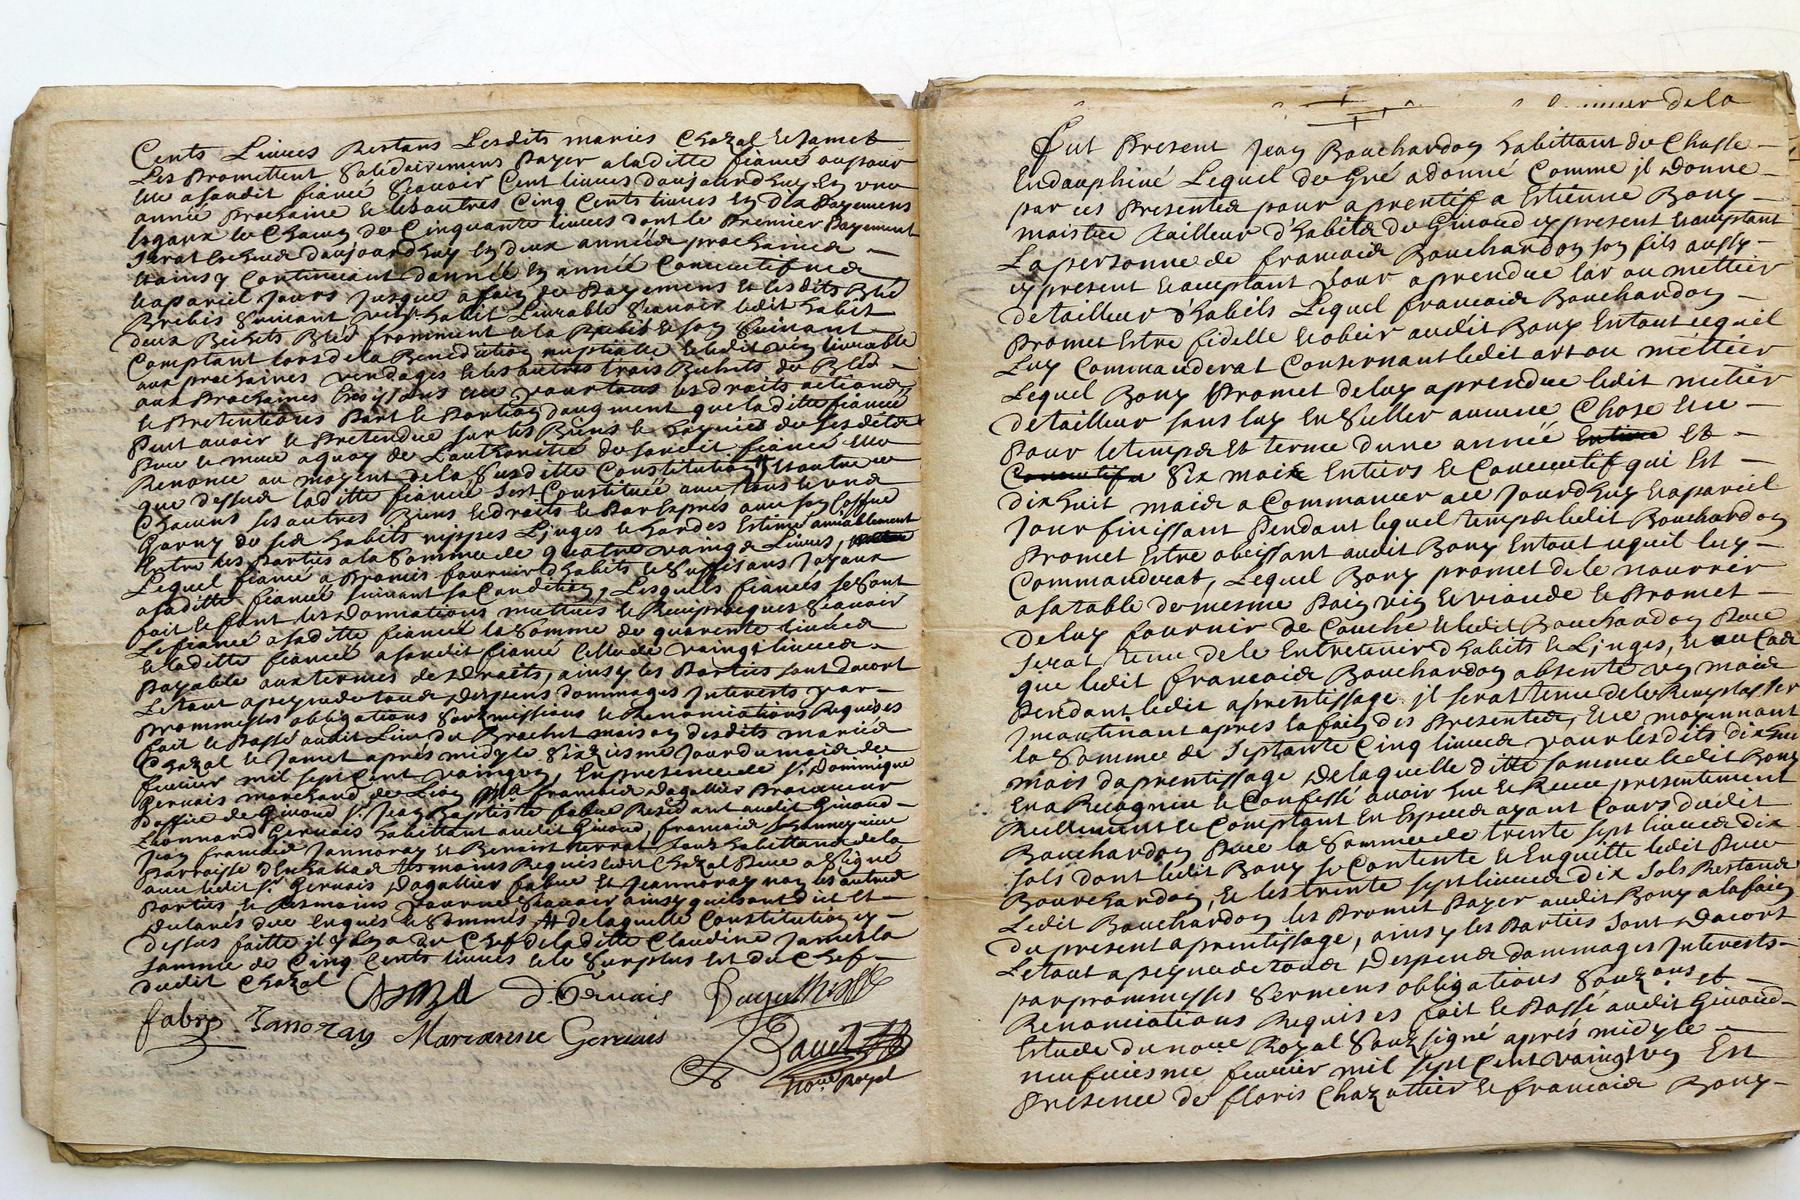 Cents Livres Restans Lesdits maries Chazal et Jamet
Les Promettent Solidairement Payer a laditte fiancé ou pour
elle a sondit fiancé Scavoir Cent livres daujourdhuy En une
année Prochaine et les autres Cinq Cents livres En dix Payemens
Esgaux de Chacun de Cinquante livres dont le Premier Payement
Serat Escheu daujourdhuy En deux années prochaines
et ainsy Continuant dannée En année Consecutifves
et apareil Jours Jusque a fain de Payemens et lesdits Bled
Brebis Suivant vin habit Livrable Scavoir ledit habit
deux Bichets Bled fromment et la Brebis et son Suivant
Comptant lors de la Benediction nuptialle et ledit vin livrable
aux prochaines vendages et les autres trois Bichets de Bled
aux Prochaines moissons et ce pour tous les droits actions
et Pretentions Part et Portion daugment que laditte fiancée
Peut avoir et Pretendre sur les Biens de ses dits
Pere et mere a quoy de Lauthorité du sondit fiancé elle
Renonce au moyent de la Susditte Constitution et outre ce
que dessus laditte fiancée Sest Constituée en tous et uns
Chacuns ses autres Biens et droits et Par Exprés son Coffre
Garny de ses habits nippes Linges et hardes Estimé amiablement
Entre les Parties a la Somme de quatre vaingts Livres,
Lequel fiancé a Promis fournir dhabits et Suffisans Joyaux
a saditte fiancée suivant sa Condition, Lesquels fiancés se Sont
fait et font les donnations mutuées et Reciprocques Scavoir
Le fiancé a saditte fiancée la Somme de quarente livres
et laditte fiancée a sondit fiancé Celle de vaingt livres
Payable aux termes de droits, ainsy les Parties sont dacort
Le tout a peyne de tous despens dommages Interests par
prommesses obligations Sousmissions et Renonciations Requises
fait et Passé audit Lieu du Brachet maison desdits mariés
Chazal et Jamet aprés midy le Sixiesme Jour du mois de
fevrier mil sept Cent vaingt un, En presence de Sr. Dominique
Gervais marchand de Lion francois Dagallier Procureur
doffice de Givord Sr. Jean Baptiste fabre Resid ant audit Givord
Leonnard Gervais habittant audit Givord, francois
Jean francois Jannoray et Benoist terrat tous habittans de la
Parroisse temoins Requis ledit Chazal Pere a Signé
avec ledit Sr. Gervais Dagallier fabre Et Jeannoray non les autres
Parties et Tesmoins Pour ne Scavoir ainsy quils ont dit Et
declarés due Enquis et Sommés de laquelle Constitution cy
dessus faitte il y En a du Chef de laditte Claudine Jamet la
Somme de Cinq Cents livres et le Surplus Est du Chef
dudit Chazal Chazal D. Gervais
fabre Janoray Mareanne Gervais
Nore. Royal
de la
Fut Present Jean Bouchardon habittant de Chasse
En dauphiné Lequel de Gré a donné Comme il donne
par ces Presentes pour aprentif a Estienne Bony
maistre tailleur dhabits de Givord cy present et acceptant
La personne de francois Bouchardon son fils aussy
cy present et acceptant pour aprendre lar ou mettier
de tailleur dhabits Lequel francois Bouchardon
Promet Estre fidelle et obeir audit Bony En tout ce quil
Luy Commanderat Consernant ledit art ou mettier
Lequel Bony Promet de luy aprendre ledit metier
de tailleur sans luy En Seller aucune Chose et ce
Pour le temps et terme dune année Entiere Et
Consecutifve Six mois Entiers et Consecutif qui Est
dix huit mois a Commancer a ce Jourdhuy et apareil
Jour finissant Pendant lequel temps ledit Bouchardon
Promet Estre obeissant audit Bony En tout ce quil luy
Commanderat, Lequel Bony promet de le nourrir
a sa table de mesme Pain vin et viande et Promet
de luy fournir de Couche et ledit Bouchardon Pere
serat tenu de le Entretenir dhabits et Linges, et au Cas
que ledit francois Bouchardon absente un mois
Pendant ledit aprentissage il serat tenu de les Remplasser
Incontinant apres la fain des Presentes, et ce moyennant
la Somme de Septante Cinq livres pour lesdits dix huit
mois daprentissage de laquelle ditte somme ledit Bony
En a Recognue et Confessé avoir Eue et Receu presentement
Reellement et Comptant En Especes ayant Cours dudit
Bouchardon Pere la Somme de trente sept livres dix
sols dont ledit Bony se Contente et En quitte ledit Pere
Bouchardon, et les trente sept livres dix Sols Restans
Ledit Bouchardon les Promet Payer audit Bony a la fain
du present aprentissage, ainsy les Parties sont dacort
Le tout a peyne de tous Despens dommages Interests
par prommesses Sermens obligations et
Renonciations Requises fait et Passé audit Givord
Estude du nore. Royal Soubsigné aprés midy le
neufviesme fevrier mil sept Cent vaingt un En
Presence de floris Chazottier et francois Bony